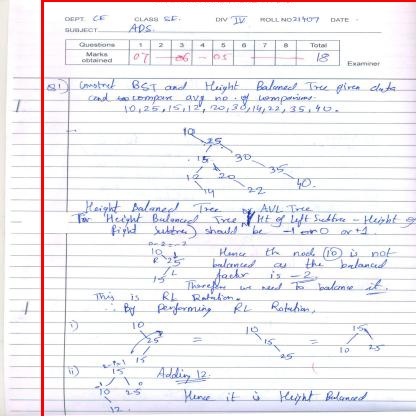 DEPT. CE CLASS SE. DIV IV ROLL NO 21407 DATE -
SUBJECT ADS.
Questions 1 2 3 4 5 6 7 8 Total
Marks obtained 07 - 06 - 05 18
Examiner
Q1) Construct BST and Height Balanced Tree given data
and compare avg no. of comparisions.
10, 25, 15, 12, 20, 30, 14, 22, 35, 40.
10
25
15 30
12 20 35
14 22 40.
Height Balanced Tree AVL Tree
For Height Balanced Tree, Ht of Left Subtree - Height of
Right Subtree) should be -1 or 0 or +1.
0-2=-2
10 Hence the node 10 is not
R 25 balanced as the balanced
L factor is -2.
15 Therefore we need to balance it.
This is RL Rotation.
∴ By performing RL Rotation,
i) 10 10 15
25 = 15 = 10 25
15 25
ii) 15 Adding 12.
10 25 Hence it is Height Balanced
12